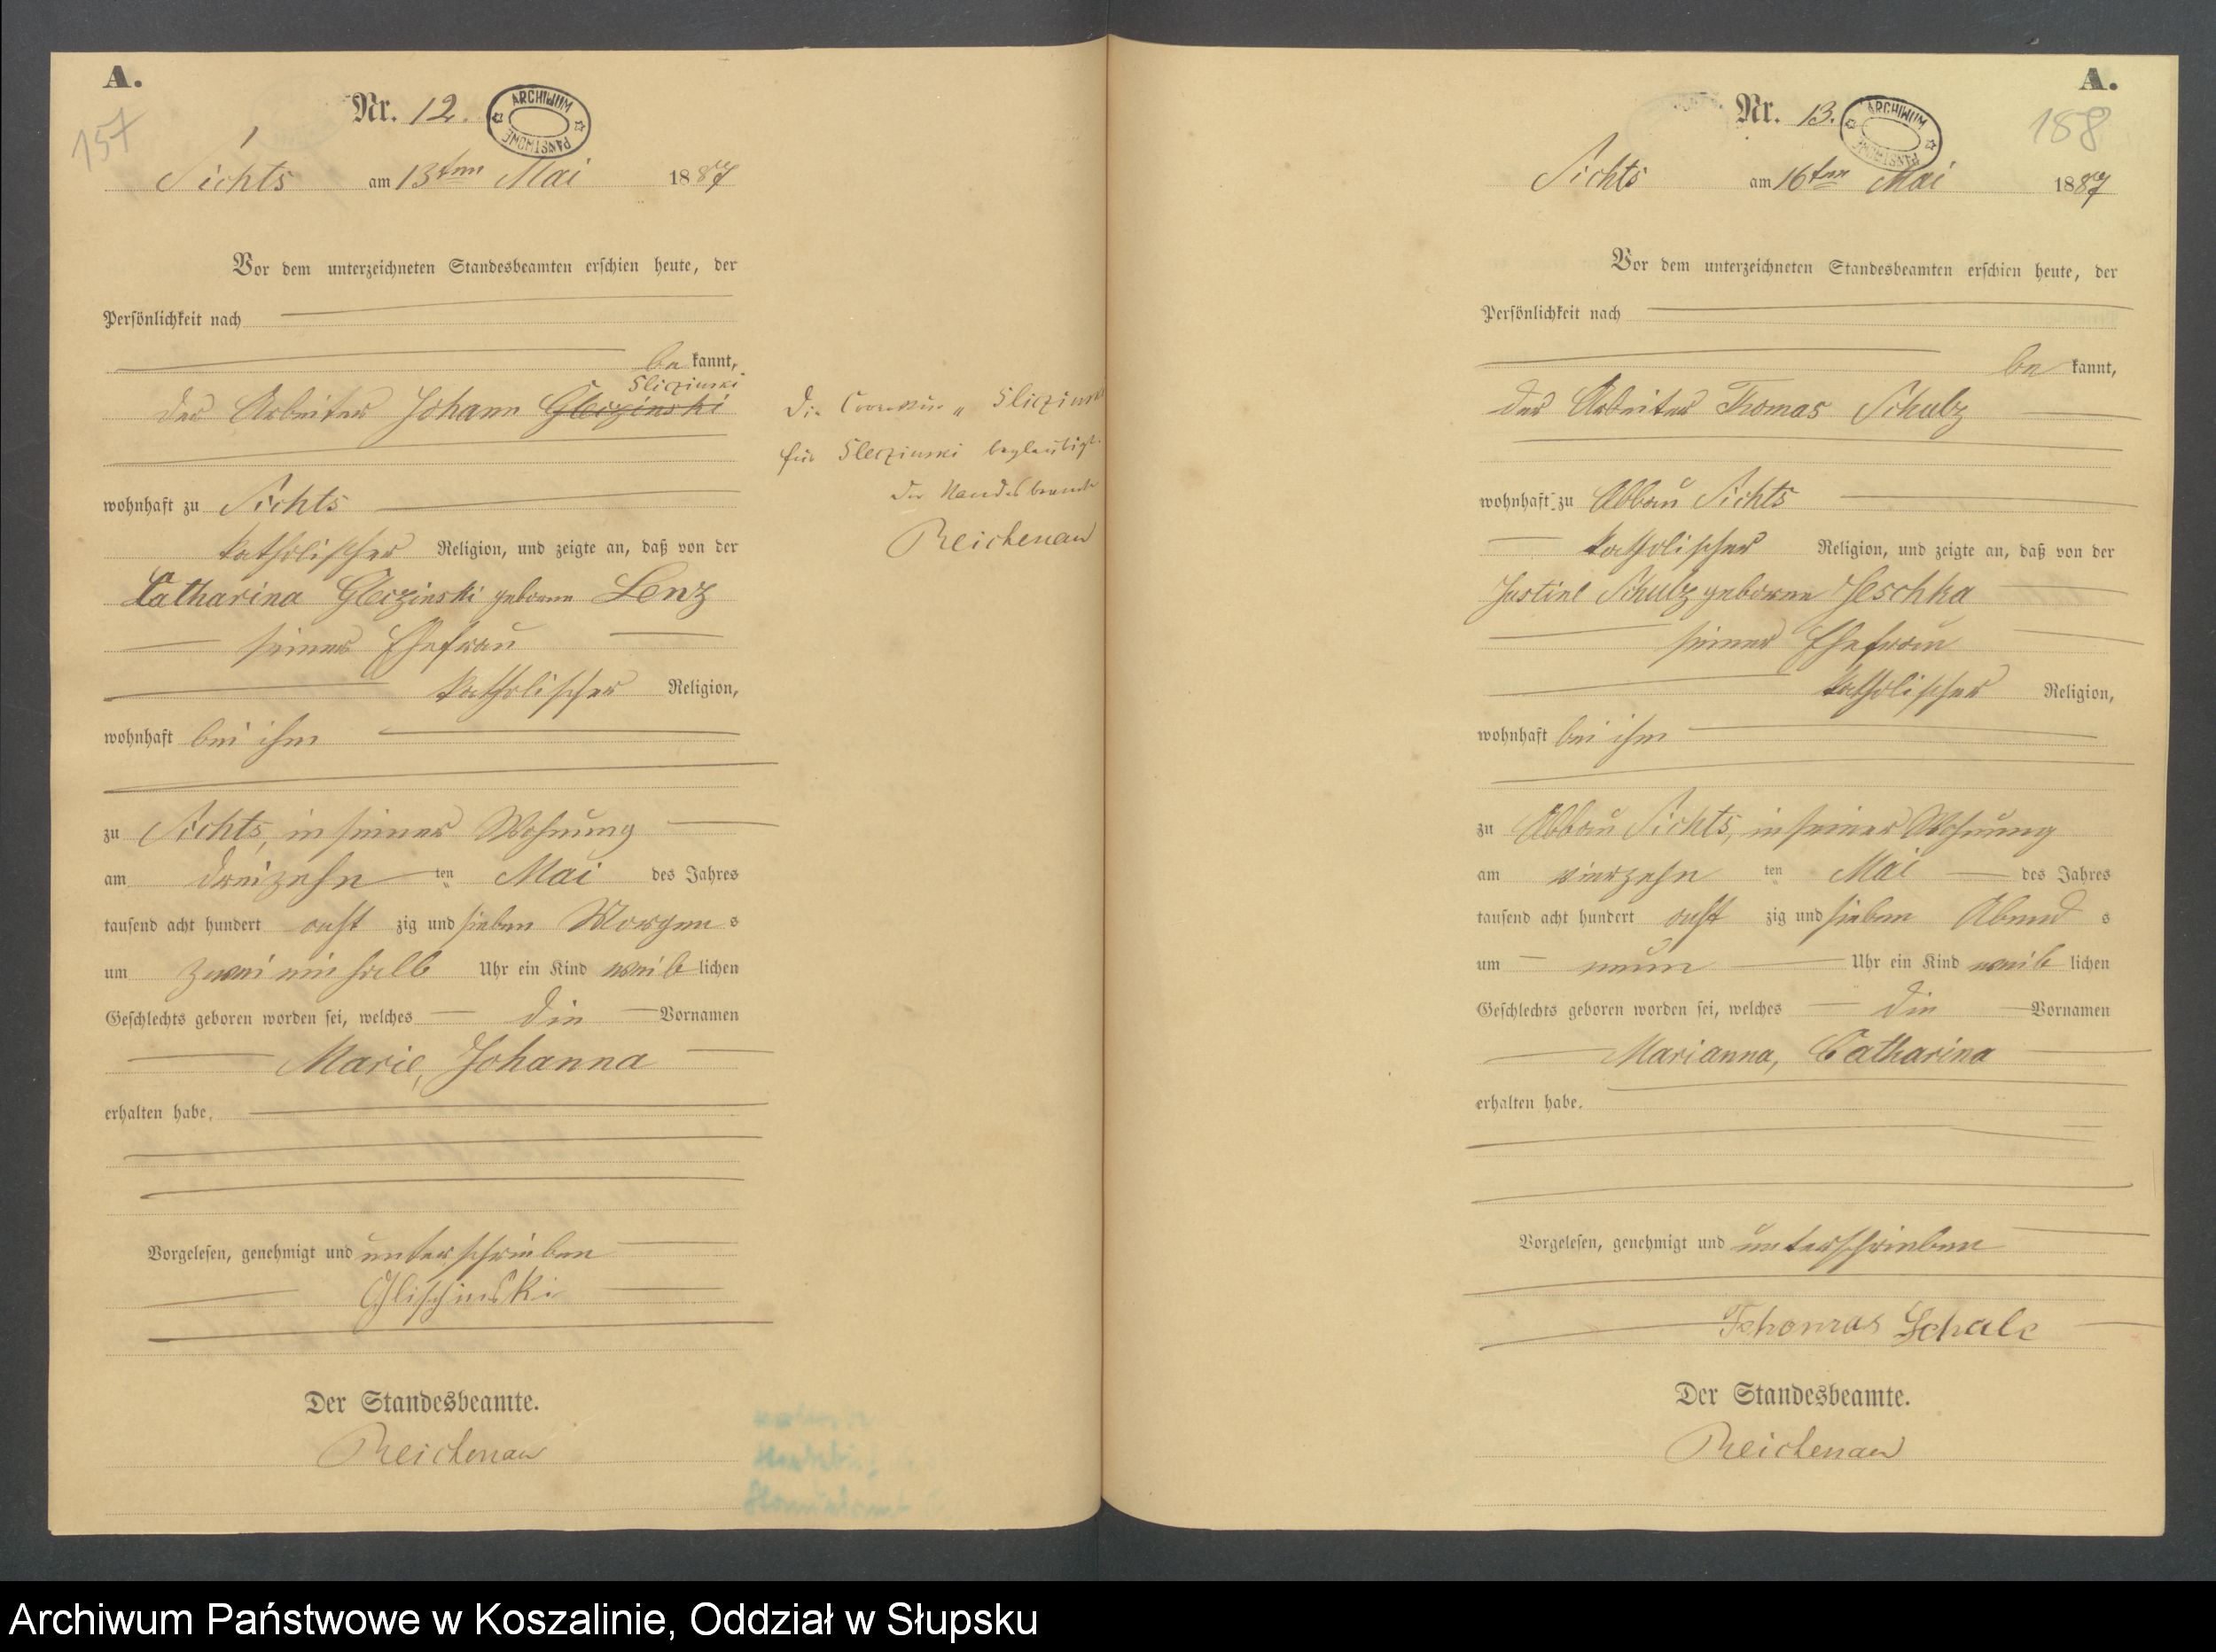 A.
157
Nr. 12.
ARCHIWUM PAŃSTWOWE
Sichts am 13ten Mai 1887
Vor dem unterzeichneten Standesbeamten erschien heute, der
Persönlichkeit nach
be kannt,
Sliczinski
der Arbeiter Johann Gleczinski
wohnhaft zu Sichts
katholischer Religion, und zeigte an, daß von der
Catharina Gleczinski geborne Lenz
seiner Ehefrau
katholischer Religion,
wohnhaft bei ihm
zu Sichts, in seiner Wohnung
am dreizehn ten Mai des Jahres
tausend acht hundert acht zig und sieben Morgen s
um zwei ein halb Uhr ein Kind weib lichen
Geschlechts geboren worden sei, welches die Vornamen
Marie, Johanna
erhalten habe.
Vorgelesen, genehmigt und unterschrieben
Glischinski
Der Standesbeamte.
Reichenau
Die Correktur
für beglaubigt
Der Standesbeamte
Reichenau
A.
188
Nr. 13.
ARCHIWUM PAŃSTWOWE
Sichts am 16ten Mai 1887
Vor dem unterzeichneten Standesbeamten erschien heute, der
Persönlichkeit nach
be kannt,
der Arbeiter Thomas Schulz
wohnhaft zu Abbau Sichts
katholischer Religion, und zeigte an, daß von der
Justine Schulz geborne Jeschka
seiner Ehefrau
katholischer Religion,
wohnhaft bei ihm
zu Abbau Sichts, in seiner Wohnung
am vierzehn ten Mai des Jahres
tausend acht hundert acht zig und sieben Abend s
um neun Uhr ein Kind weib lichen
Geschlechts geboren worden sei, welches die Vornamen
Marianna, Catharina
erhalten habe.
Vorgelesen, genehmigt und unterschrieben
Thomas Schulc
Der Standesbeamte.
Reichenau
Archiwum Państwowe w Koszalinie, Oddział w Słupsku